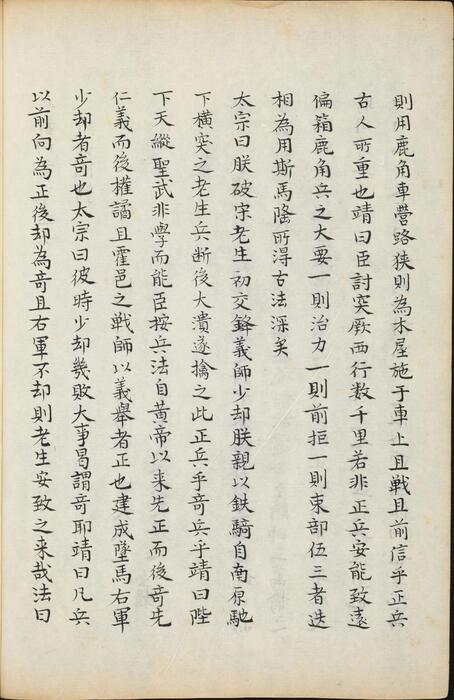 則用鹿角車營路狹則為木屋施于車上且戦且前信乎正兵
古人所重也靖曰臣討突厥西行数千里若非正兵安能致遠
偏箱鹿角兵之大要一則治力一則前拒一則束部伍三者迭
相為用斯馬隆所得古法深矣
太宗曰朕破宋老生初交鋒義師少却朕親以鉄騎自南原馳
下橫突之老生兵断後大潰遂擒之此正兵乎竒兵乎靖曰陛
下天縱聖武非學而能臣按兵法自黄帝以来先正而後竒先
仁義而後權譎且霍邑之戦師以義舉者正也建成墜馬右軍
少却者竒也太宗曰彼時少却幾敗大事曷謂竒耶靖曰凡兵
以前向為正後却為竒且右軍不却則老生安致之来哉法曰